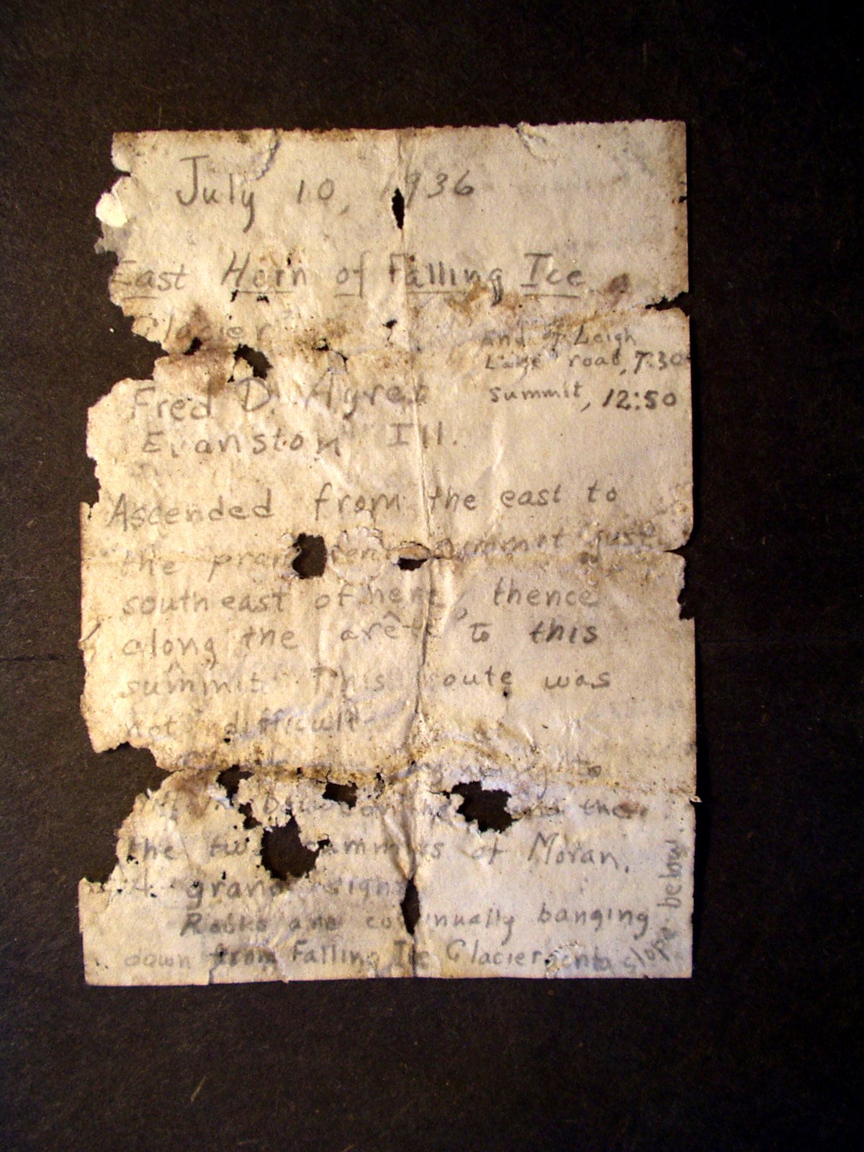 July 10, 1936
East Horn of Falling Ice
Glacier
End of Leigh
Lake road, 7:30
Summit, 12:50
Fred D. Ayres
Evanston Ill.
Ascended from the east to
the summit just
southeast of here, thence
along the arête to this
summit. This route was
not difficult.
to
the
the two summits of Moran.
A grand sight.
Rocks are continually banging
down from Falling Ice Glacier onto slope below.